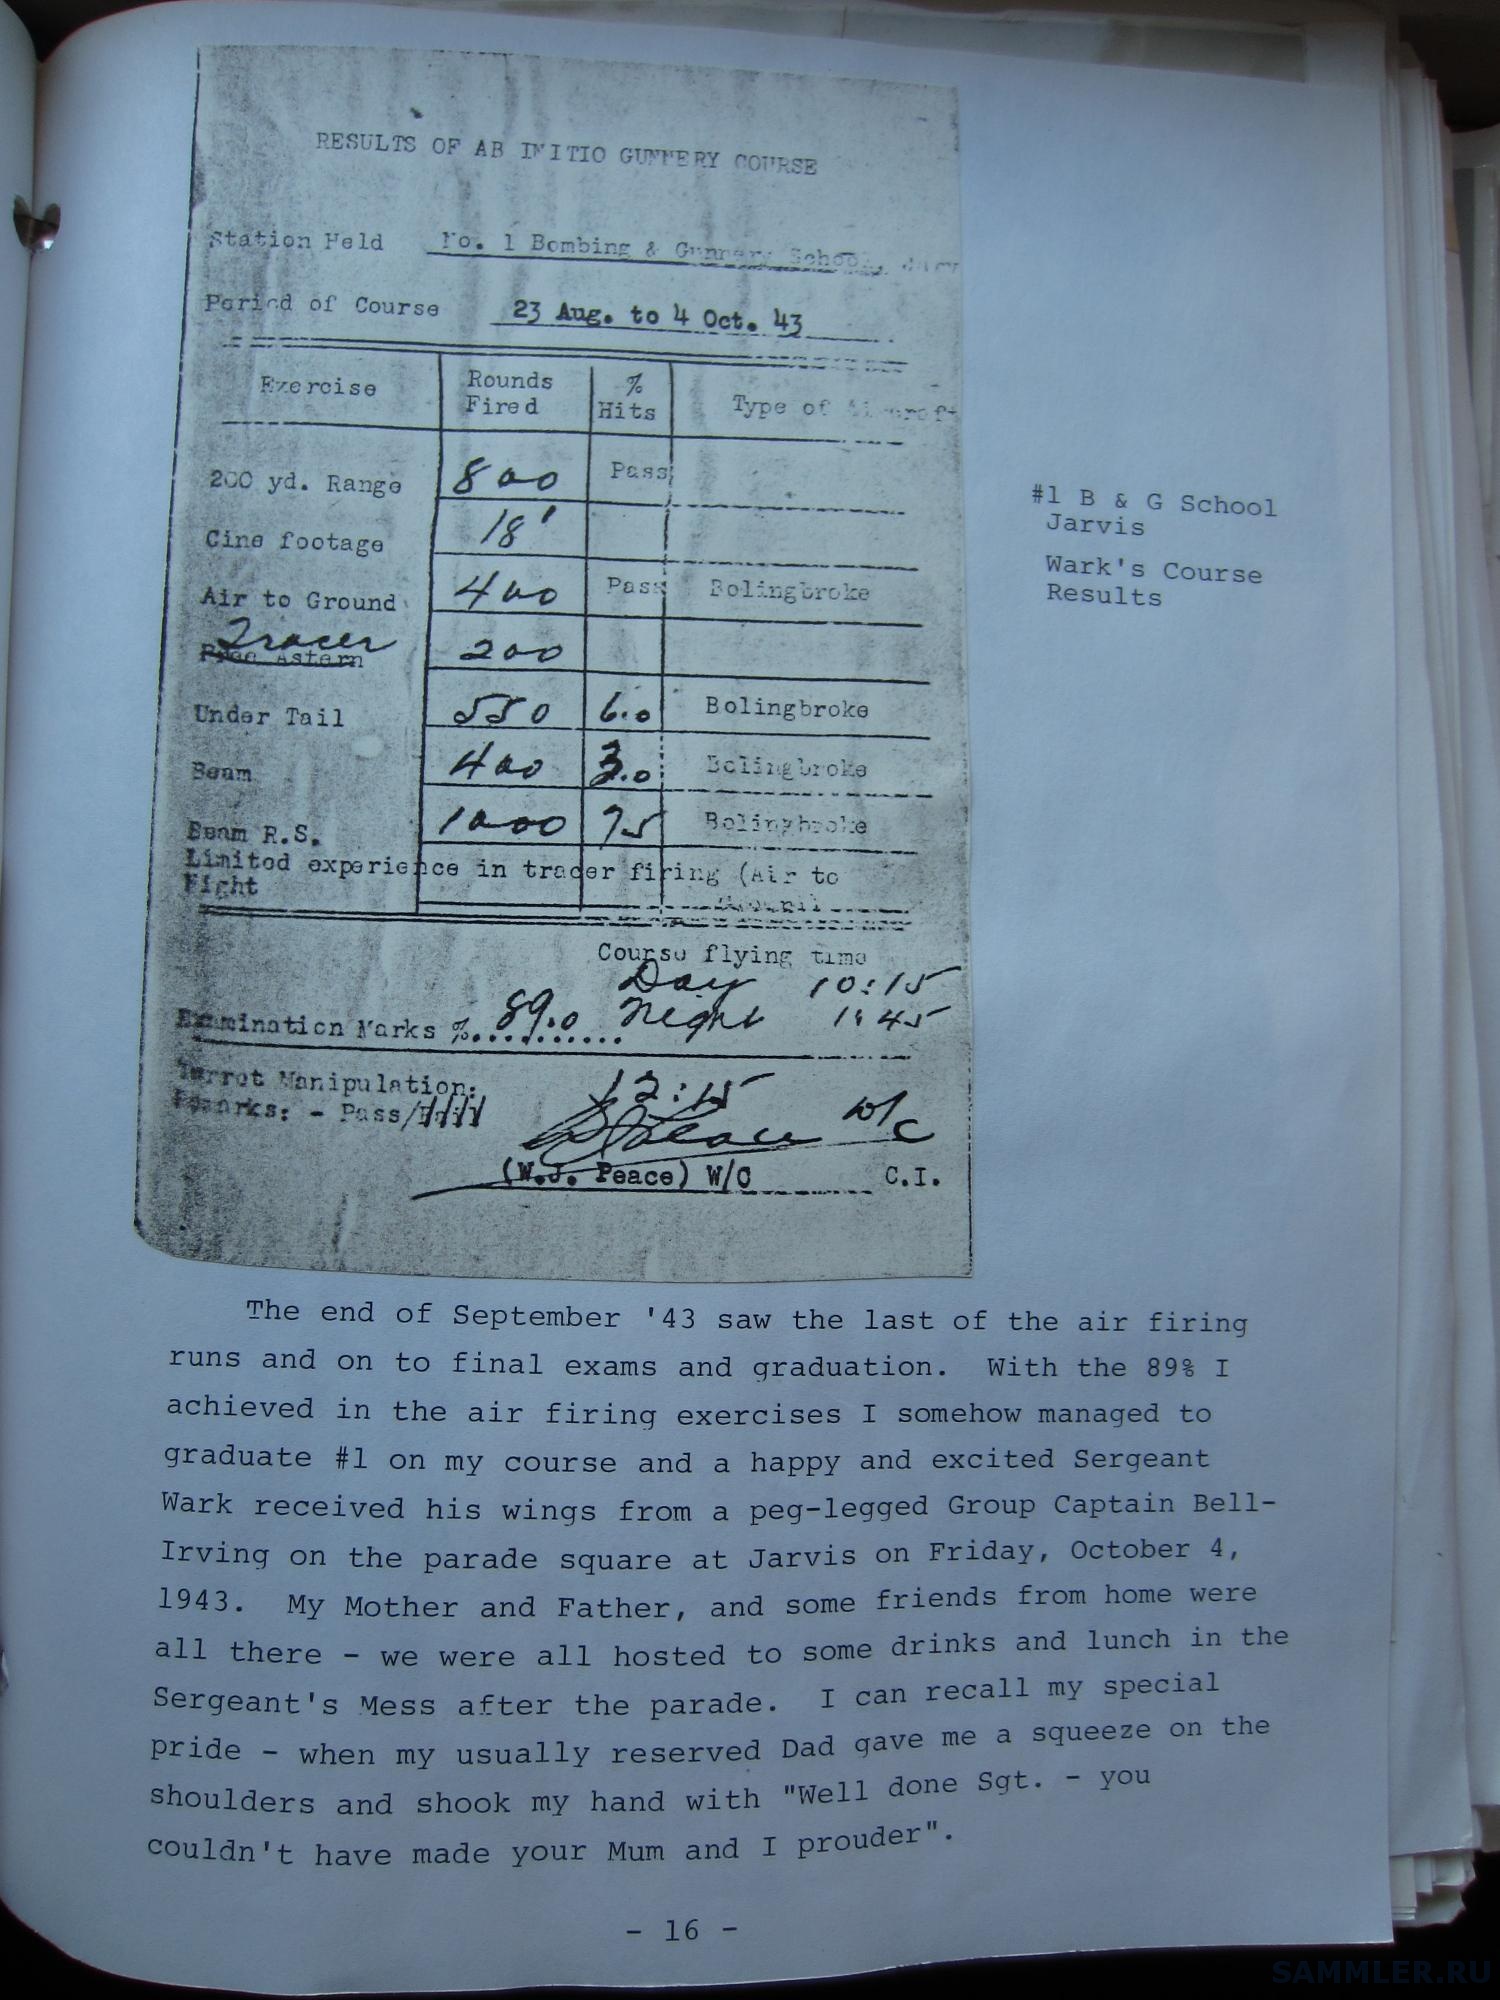 RESULTS OF AB INITIO GUNNERY COURSE
Station Held No. 1 Bombing & Gunnery School,
Period of Course 23 Aug. to 4 Oct. 43
Exercise Rounds Fired % Hits Type of Aircraft
200 yd. Range 800 Pass
Cine footage 18'
Air to Ground 400 Pass Bolingbroke
Tracer
Astern 200
Under Tail 550 6.0 Bolingbroke
Beam 400 3.0 Bolingbroke
Beam R.S. 1000 75 Bolingbroke
Limited experience in tracer firing (Air to
Fight
Course flying time
Day 10:15
Examination Marks % 89.0 Night 1:45
Turret Manipulation: 12:15
Remarks: - Pass/Fail
W/C
(W.J. Peace) W/C C.I.
#1 B & G School
Jarvis
Wark's Course
Results
The end of September '43 saw the last of the air firing
runs and on to final exams and graduation. With the 89% I
achieved in the air firing exercises I somehow managed to
graduate #1 on my course and a happy and excited Sergeant
Wark received his wings from a peg-legged Group Captain Bell-
Irving on the parade square at Jarvis on Friday, October 4,
1943. My Mother and Father, and some friends from home were
all there - we were all hosted to some drinks and lunch in the
Sergeant's Mess after the parade. I can recall my special
pride - when my usually reserved Dad gave me a squeeze on the
shoulders and shook my hand with "Well done Sgt. - you
couldn't have made your Mum and I prouder".
- 16 -
SAMMLER.RU